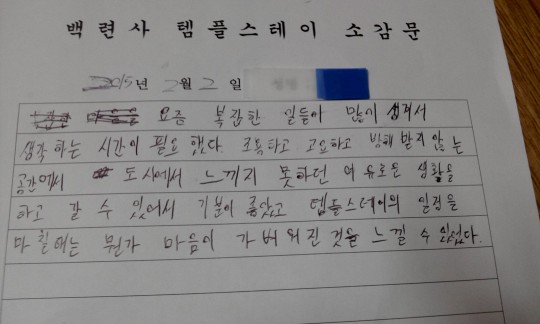 백련사 템플스테이 소감문
2015년 2월 2일
요즘 복잡한 일들이 많이 생겨서
생각하는 시간이 필요했다. 조용하고 고요하고 방해 받지 않는
공간에서 도시에서 느끼지 못하던 여유로운 생활을
하고 갈 수 있어서 기분이 좋았고 템플스테이의 일정을
마칠때는 뭔가 마음이 가벼워진 것을 느낄 수 있었다.